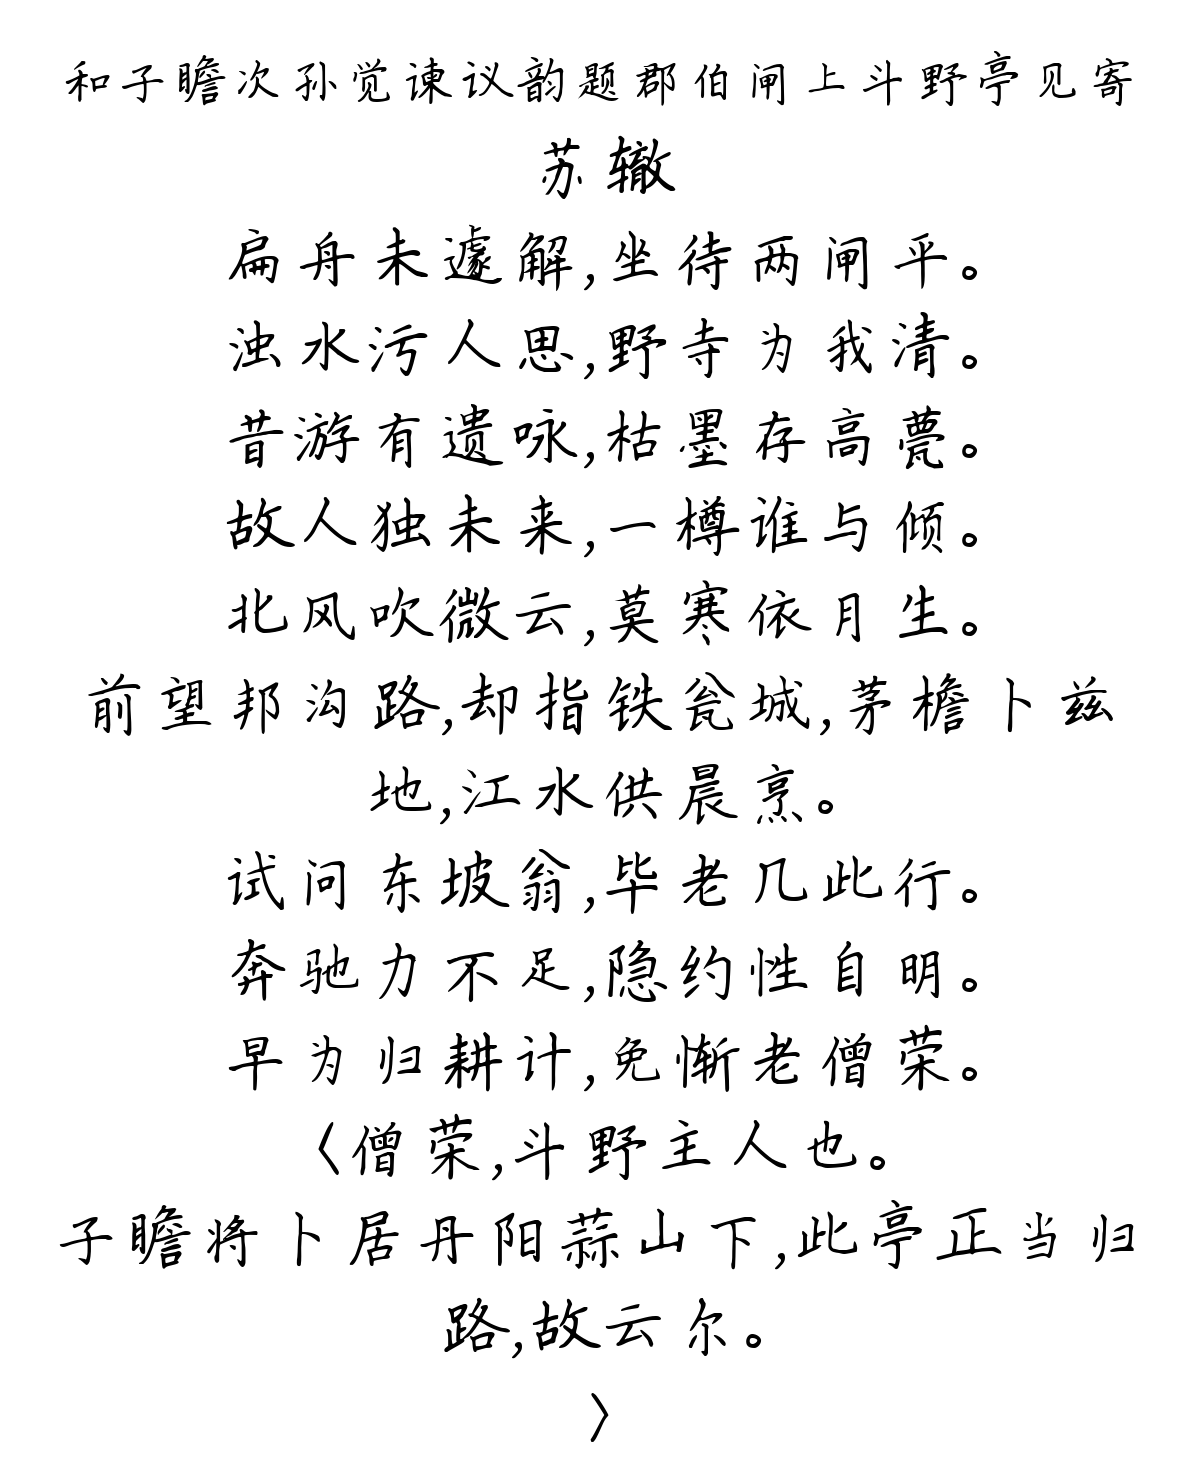 和子瞻次孙觉谏议韵题郡伯闸上斗野亭见寄
苏辙
扁舟未遽解,坐待两闸平。
浊水污人思,野寺为我清。
昔游有遗咏,枯墨存高甍。
故人独未来,一樽谁与倾。
北风吹微云,莫寒依月生。
前望邦沟路,却指铁瓮城,茅檐卜兹
地,江水供晨烹。
试问东坡翁,毕老几此行。
奔驰力不足,隐约性自明。
早为归耕计,免惭老僧荣。
〈僧荣,斗野主人也。
子瞻将卜居丹阳蒜山下,此亭正当归
路,故云尔。
〉